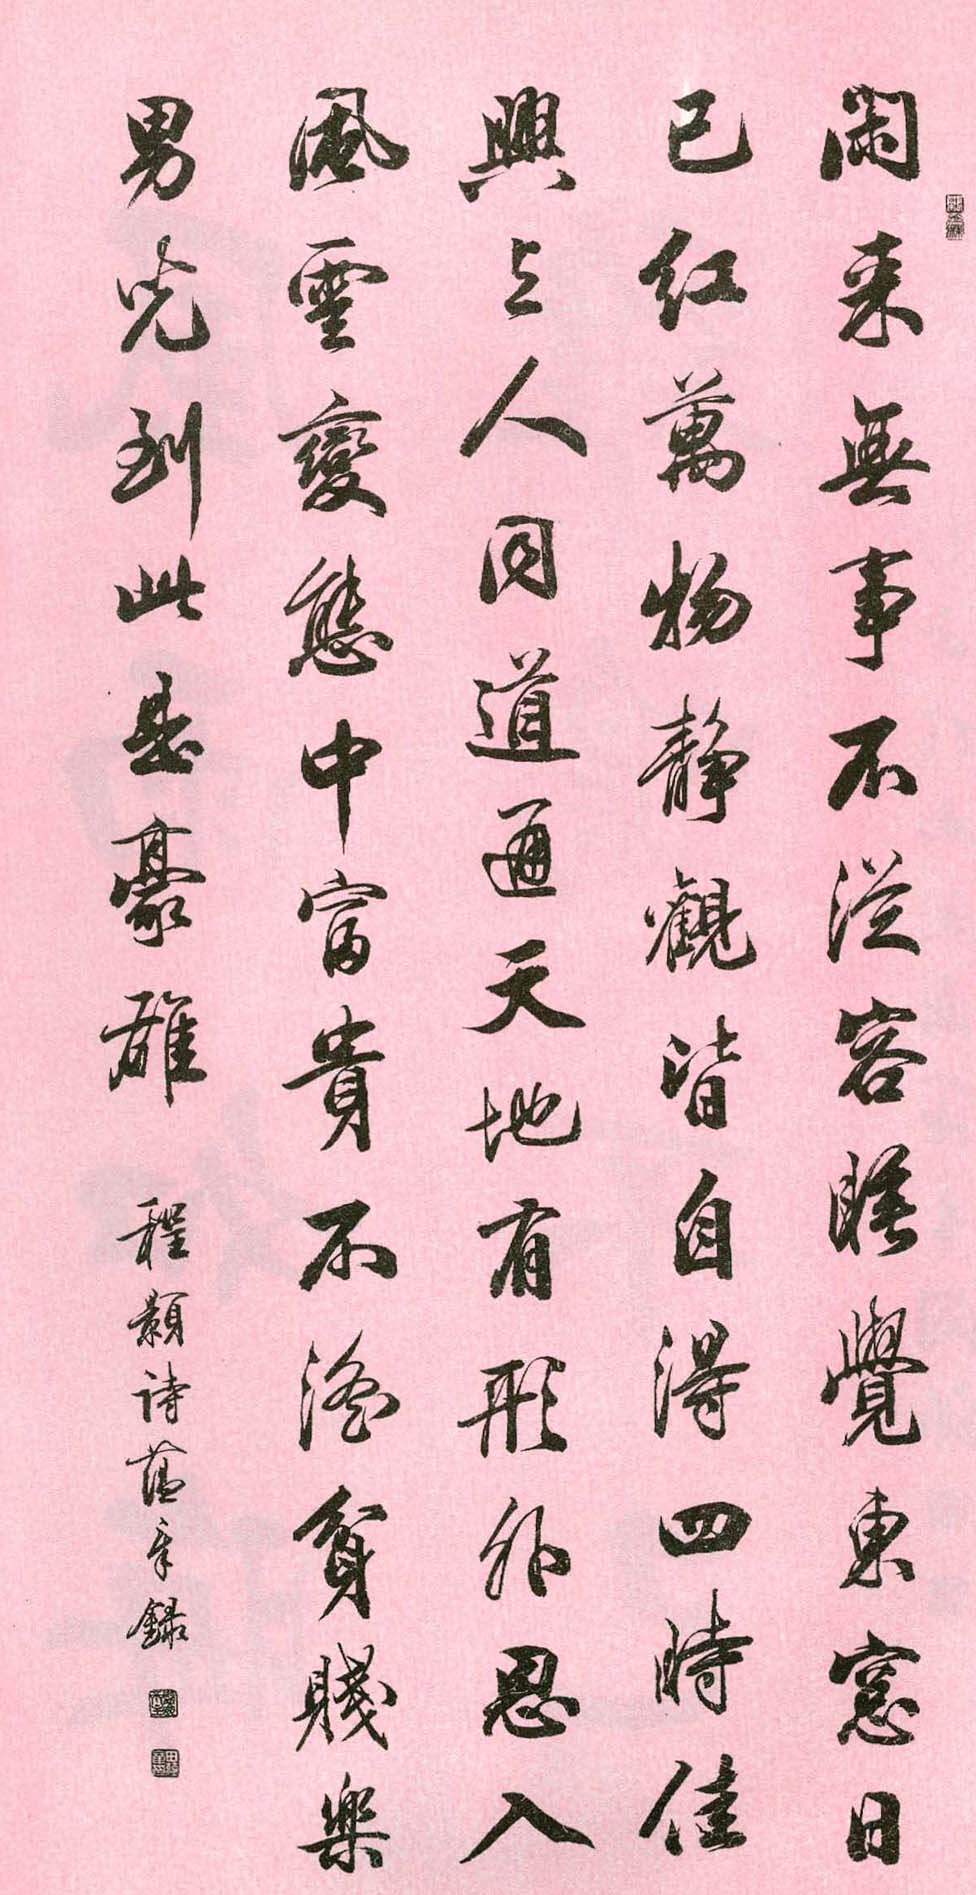 閑来無事不從容睡覺東窓日
已红萬物静觀皆自得四時佳
興与人同道通天地有形外思入
風雲變態中富貴不淫貧賤樂
男児到此是豪雄 程顥詩蕴章錄